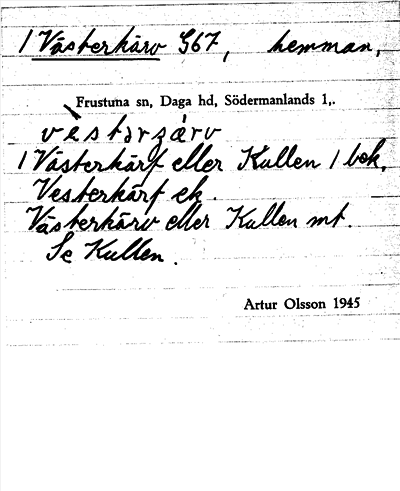 1 Västerkärv G67, hemman,
Frustuna sn, Daga hd, Södermanlands l,.
vèstərʒærv
1 Västerkärf eller Kullen 1 bok,
Vesterkärf ek.
Västerkärv eller Kullen mt.
Se Kullen.
Artur Olsson 1945